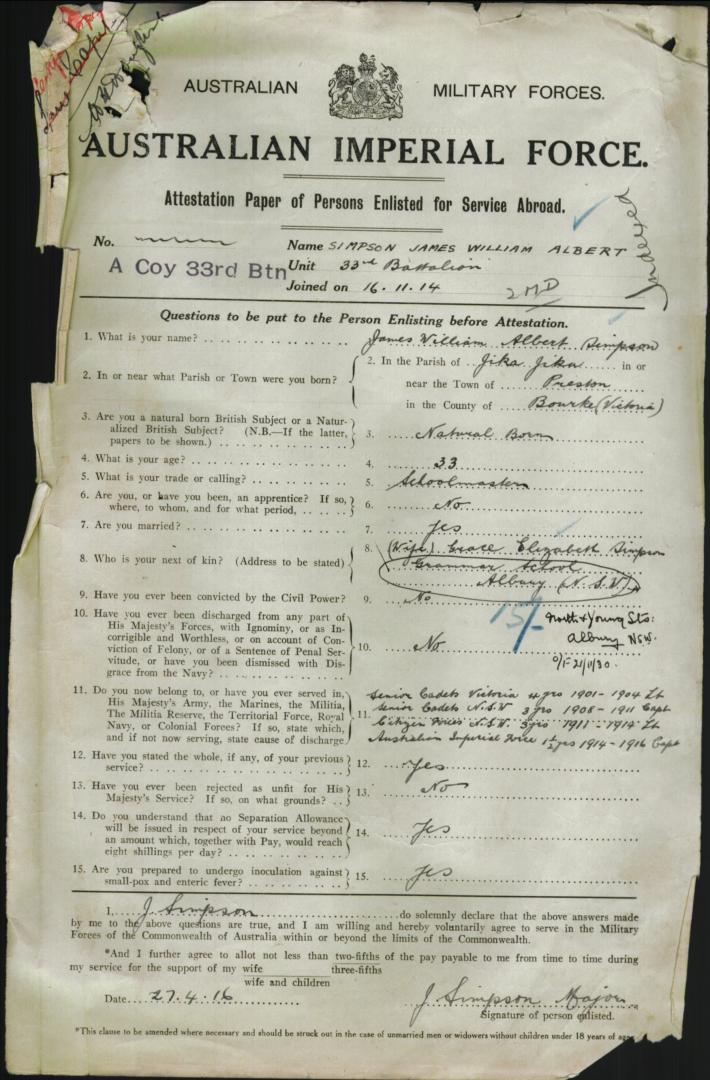 AUSTRALIAN MILITARY FORCES.
AUSTRALIAN IMPERIAL FORCE.
Attestation Paper of Persons Enlisted for Service Abroad.
Indexed
No.
Name SIMPSON JAMES WILLIAM ALBERT
A Coy 33rd Btn
Unit 33rd Battalion
Joined on 16.11.14
2MD
Questions to be put to the Person Enlisting before Attestation.
1. What is your name? James William Albert Simpson
2. In or near what Parish or Town were you born?
2. In the Parish of Jika Jika in or
near the Town of Preston
in the County of Bourke (Victoria)
3. Are you a natural born British Subject or a Natur-
alized British Subject? (N.B.—If the latter,
papers to be shown.)
3. Natural Born
4. What is your age? 4. 33
5. What is your trade or calling? 5. Schoolmaster
6. Are you, or have you been, an apprentice? If so,
where, to whom, and for what period,
6. No
7. Are you married? 7. Yes
8. Who is your next of kin? (Address to be stated)
8. (Wife) Grace Elizabeth Simpson
Grammar School
Albury (N.S.W)
9. Have you ever been convicted by the Civil Power? 9. No
10. Have you ever been discharged from any part of
His Majesty's Forces, with Ignominy, or as In-
corrigible and Worthless, or on account of Con-
viction of Felony, or of a Sentence of Penal Ser-
vitude, or have you been dismissed with Dis-
grace from the Navy?
10. No
15/-
North & Young Sts:
Albury N.S.W.
21/11/30.
11. Do you now belong to, or have you ever served in,
His Majesty's Army, the Marines, the Militia,
The Militia Reserve, the Territorial Force, Royal
Navy, or Colonial Forces? If so, state which,
and if not now serving, state cause of discharge
11.
Senior Cadets Victoria 4 yrs 1901 - 1904 Lt
Senior Cadets N.S.W 3 yrs 1908 - 1911 Capt
Citizen Forces N.S.W. 3 yrs 1911 - 1914 Lt
Australian Imperial Force 1½ yrs 1914 - 1916 Capt
12. Have you stated the whole, if any, of your previous
service?
12. Yes
13. Have you ever been rejected as unfit for His
Majesty's Service? If so, on what grounds?
13. No
14. Do you understand that no Separation Allowance
will be issued in respect of your service beyond
an amount which, together with Pay, would reach
eight shillings per day?
14. Yes
15. Are you prepared to undergo inoculation against
small-pox and enteric fever?
15. Yes
I, J Simpson do solemnly declare that the above answers made
by me to the above questions are true, and I am willing and hereby voluntarily agree to serve in the Military
Forces of the Commonwealth of Australia within or beyond the limits of the Commonwealth.
*And I further agree to allot not less than two-fifths of the pay payable to me from time to time during
three-fifths
my service for the support of my wife
wife and children
Date 27.4.16
J Simpson Major
Signature of person enlisted.
*This clause to be amended where necessary and should be struck out in the case of unmarried men or widowers without children under 18 years of age.